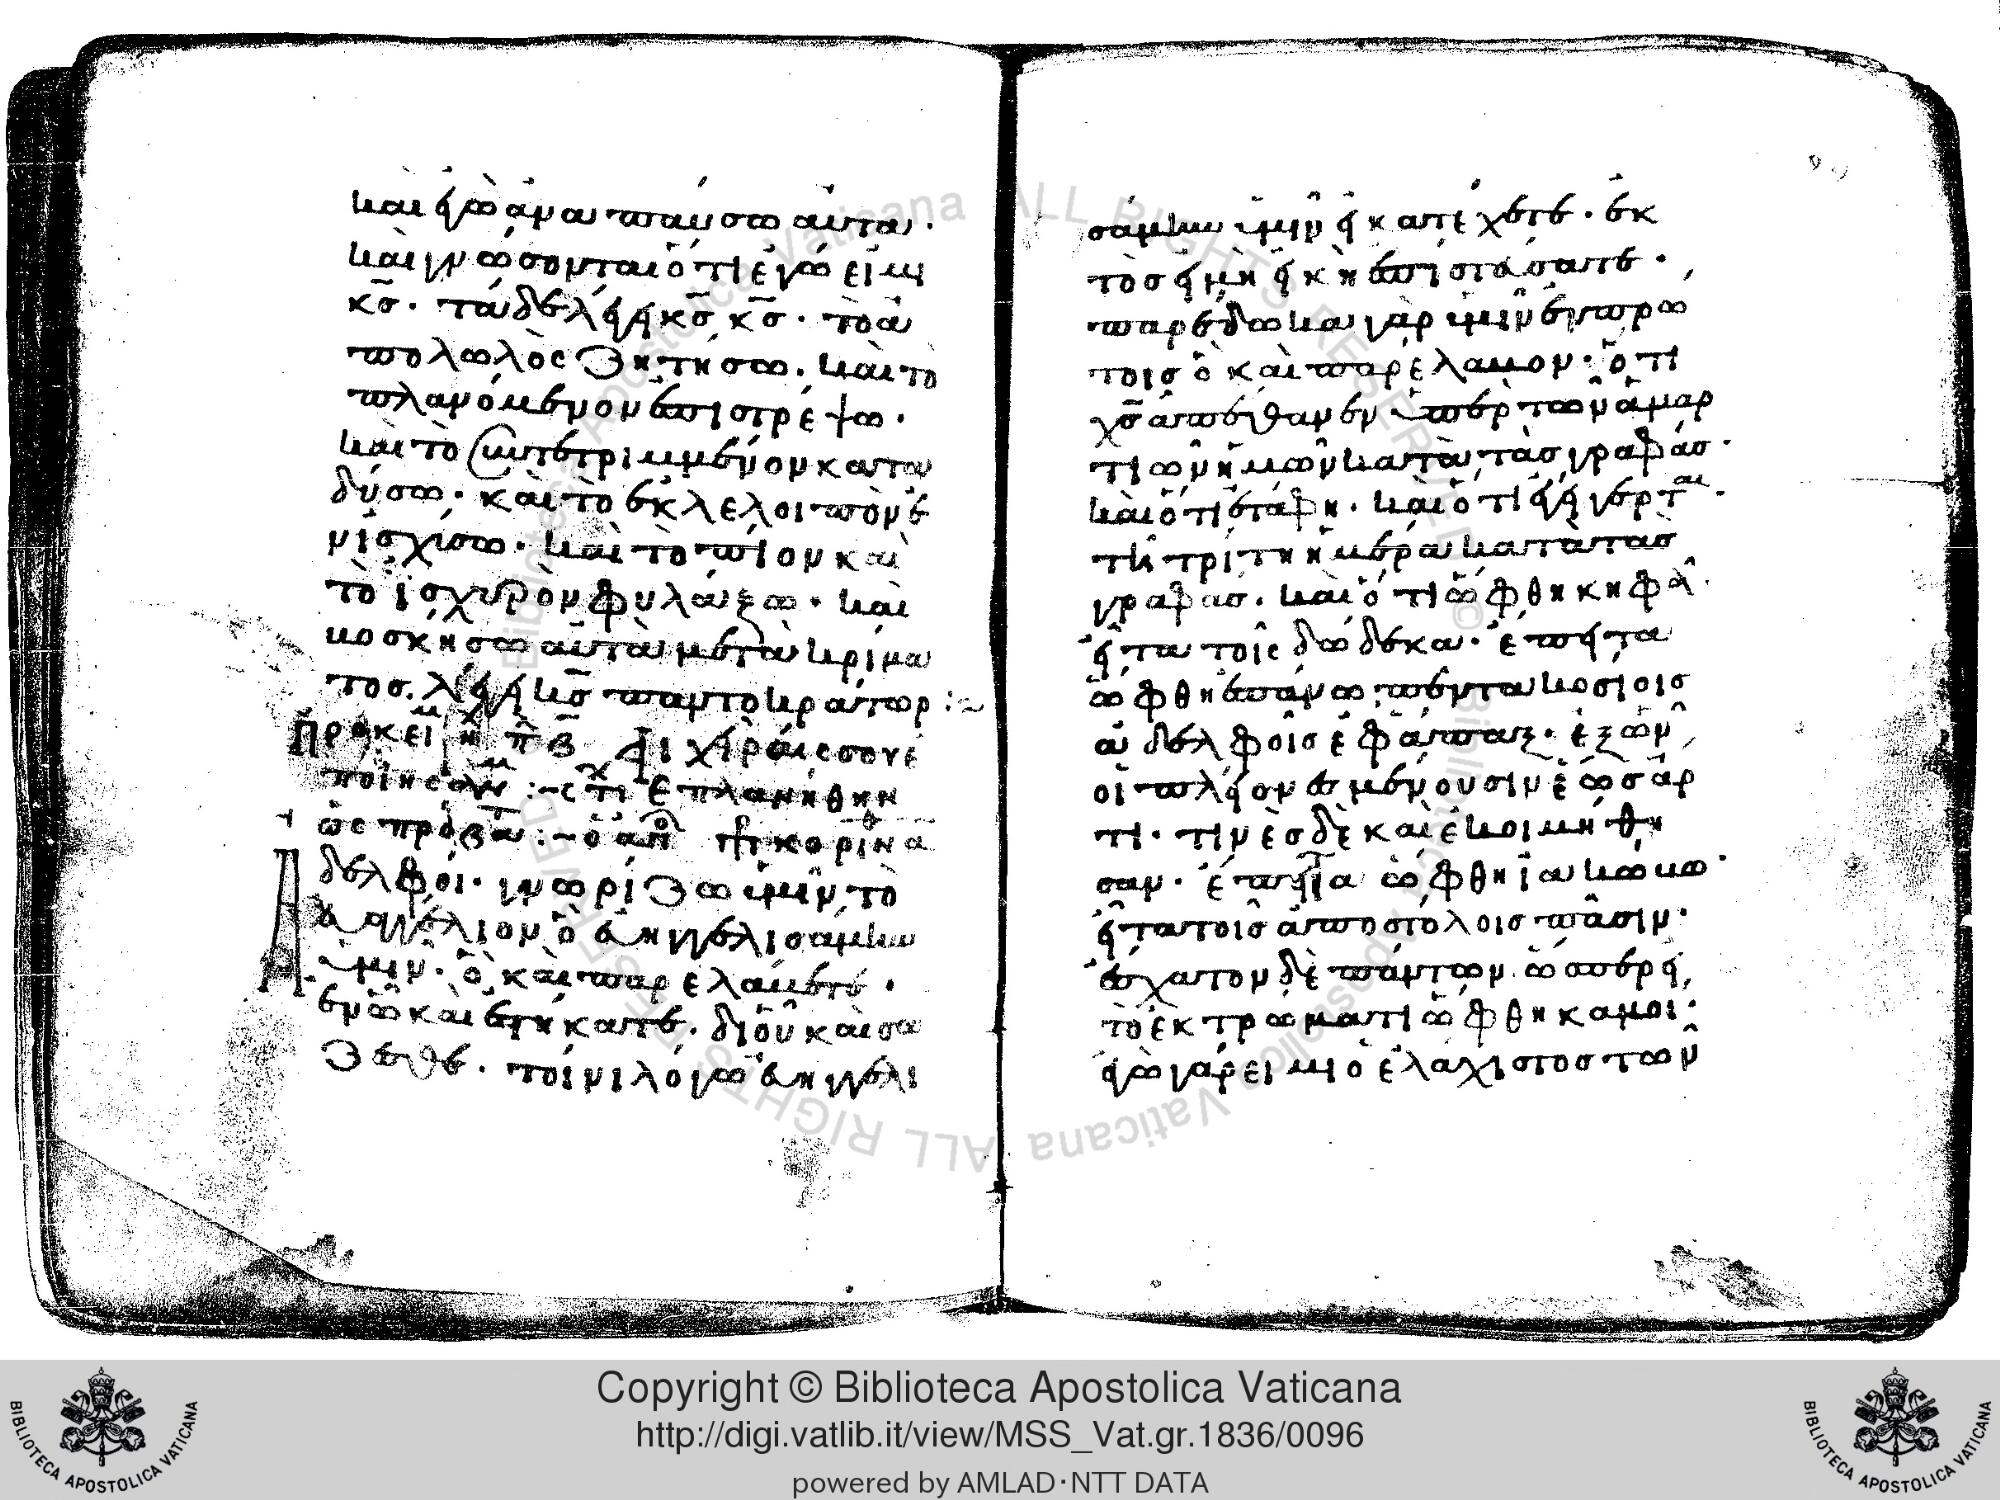 καὶ ἐγὼ ἀναπαύσω αὐτα·
καὶ γνώσονται ὅτι ἐγώ εἰμι
κ̅σ̅· τάδε λέγει κ̅σ̅ κ̅σ̅· τὸ ἀ
πολωλὸς ζητήσω· καὶ τὸ
πλανόμενον ἐπιστρέψω·
καὶ τὸ συντετριμμένον κατα
δύσω· καὶ τὸ ἐκλελοιπὸν ἐ
νισχίσω· καὶ τὸ πίον καὶ
τὸ ἰσχυρὸν φυλάξω· καὶ
βοσκήσω αὐτὰ μετὰ κρίμα
τοσ. λέγει κ̅σ̅ παντοκράτωρ:~
αἱ χῖρές σου ἐ
ποίησάν :~ στι ἐπλανήθην
ὡς πρόβα :~ ὁ ἀπ κοριν ἀ
δελφοί· γνωρίζω ὑμῖν τὸ
εὐαγγέλιον ὃ εὐηγγελισάμην
ὑμῖν· ὃ καὶ παρελάβετε·
ἐν ᾧ καὶ ἑστήκατε· δι οὗ καὶ σώ
ζεσθε· τοίνι λόγω εὐηγγελι
σάμην ὑμῖν εἰ κατέχετε· ἐκ
τὸσ εἰ μὴ εἰκῆ ἐπιστεύσατε·
παρέδωκα γὰρ ὑμῖν ἐν πρώ
τοισ ὃ καὶ παρέλαβον· ὅτι
χ̅σ̅ ἀπέθανεν ὑπὲρ τῶν ἁμαρ
τιῶν ἡμῶν κατὰ τὰσ γραφάσ·
καὶ ὅτι ἐτάφη· καὶ ὅτι ἐγήγερται·
τῆ τρίτη ἡμέρα κατὰ τασ
γραφάσ· καὶ ὅτι ὤφθη κηφᾶ·
εἶτα τοῖς δώδεκα· ἔπειτα
ὤφθη ἐπάνω πεντακοσίοισ
ἀδελφοῖσ ἐφάπαξ· ἐξ ὧν
οἱ πλείον ἑσ μένουσιν ἕωσ ἄρ
τι· τινὲσ δὲ καὶ ἐκοιμήθη
σαν· ἔπειτα ὤφθη ἰακώβω·
εἶτα τοῖσ ἀποστόλοισ πᾶσιν·
ἔσχατον δὲ πάντων ὥσπερεί
τὸ ἐκτρώματι ὤφθη κἀμοι·
ἐγὼ γάρ εἰμι ὁ ἐλάχιστοσ τῶν
Copyright © Biblioteca Apostolica Vaticana
http://digi.vatlib.it/view/MSS_Vat.gr.1836/0096
powered by AMLAD·NTT DATA
BIBLIOTECA APOSTOLICA VATICANA
BIBLIOTECA APOSTOLICA VATICANA